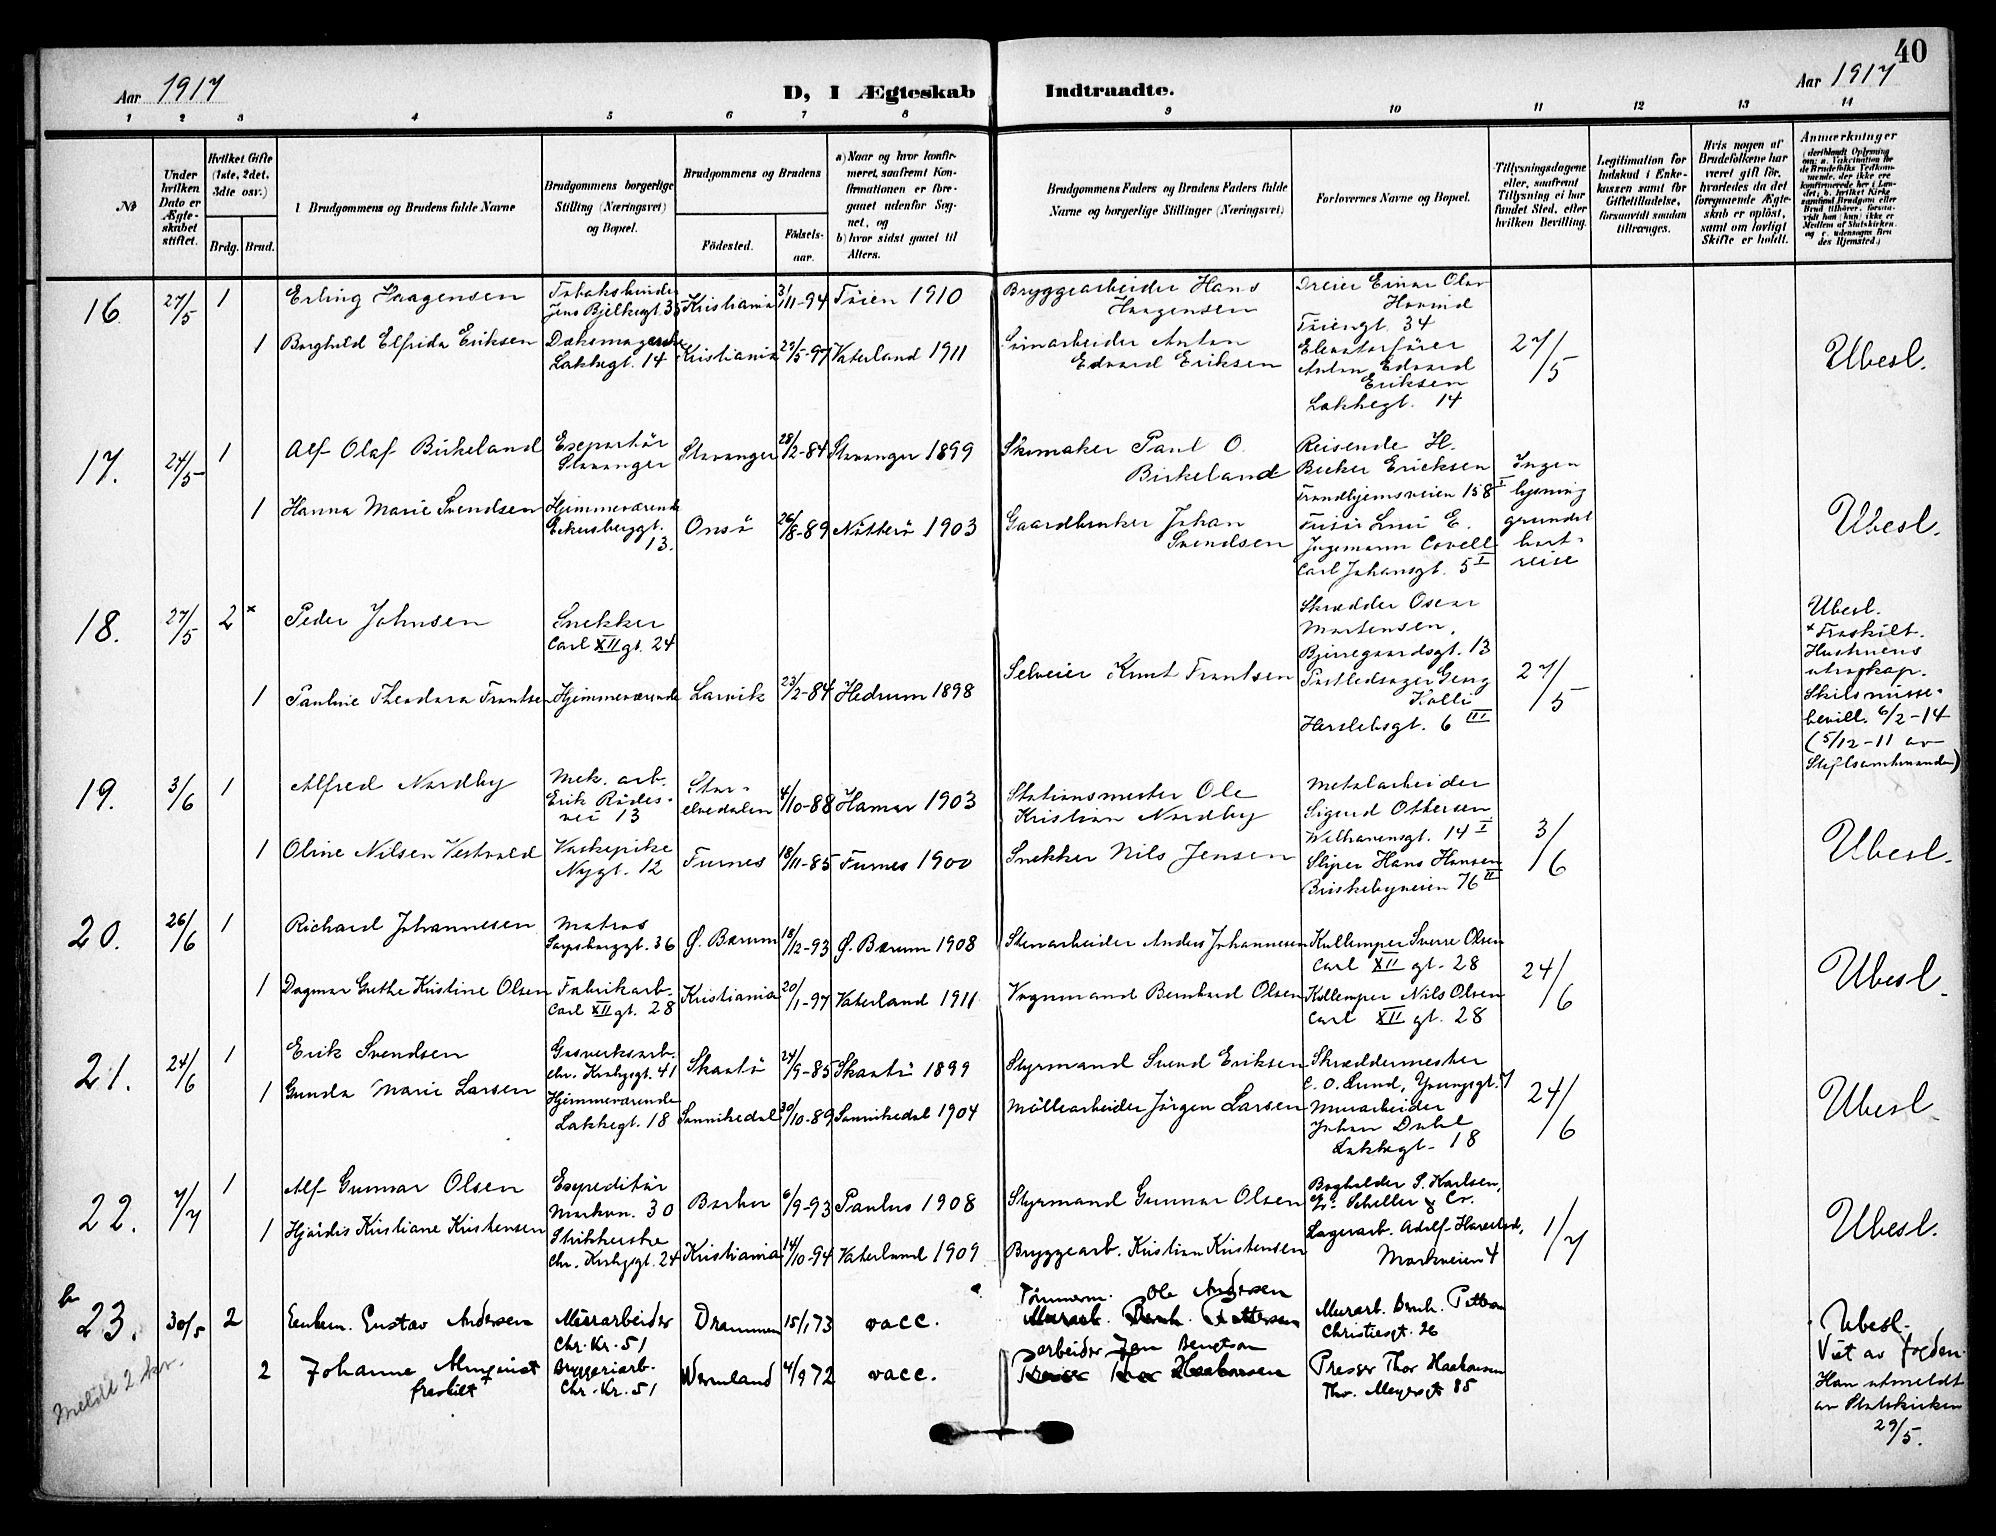 40
Aar 1917
D, I Ægteskab Indtraadte.
Aar 1917
1 2 3 4 5 6 7 8 9 10 11 12 13 14
No
Under hvilken Dato er Ægteskabet stiftet.
Hvilket Gifte (1ste, 2det, 3die osv.)
Brdg. Brud.
Brudgommens og Brudens fulde Navne
Brudgommens borgerlige Stilling (Næringsvei) og Bopæl.
Brudgommens og Brudens
Fødested.
Fødselsaar.
a) Naar og hvor konfirmeret, saafremt Konfirmationen er foregaaet udenfor Sognet, og
b) hvor sidst gaaet til Alters.
Brudgommens Faders og Brudens Faders fulde Navne og borgerlige Stillinger (Næringsvei)
Forlovernes Navne og Bopæl.
Tillysningsdagene eller, saafremt Tillysning ei har fundet Sted, efter hvilken Bevilling.
Legitimation for Indskud i Enkekassen samt for Giftetilladelse, forsaavidt saadan tiltrænges.
Hvis nogen af Brudefolkene har været gift før, hvorledes da det foregaaende Ægteskab er opløst, samt om lovligt Skifte er holdt.
Anmærkninger
16 27/5 1 Erling Haagensen
Jens Bjelkesgt. 35 Kristiania 31/11-94 Tøien 1910
Bryggearbeider Hans Haagensen
Dreier Einar Olav
Tøiengt. 34
1 Borghild Elfrida Eriksen
Lakkegt. 14 Kristiania 29/5-97 Vaterland 1911
Anton Edvard Eriksen
Elevatorfører Anton Edvard Eriksen
Lakkegt. 14
27/5
Ubesl.
17. 24/5 1 Alf Olaf Birkeland
Stavanger Stavanger 28/2-84 Stavanger 1899
Skomaker Paul O. Birkeland
Reisende H. Becker Ericksen
Trondhjemsveien 158 I
1 Hanna Marie Svendsen Hjemmeværende
Eckersberggt. 13. Onsø 26/8-89 Nøtterø 1903
Gaardbruker Johan Svendsen
Ingemann Covell
Carl Johansgt. 5 I
Ingen lysning grundet bortreise
Ubesl.
18. 27/5 2 x Peder Johnsen
Snekker
Carl XII gt. 24
Skrædder Oscar Martensen,
Bjerregaardsgt. 13
1 Pauline Theodora Frantsen Hjemmeværende Larvik 23/2-84 Hedrum 1898
Selveier Knut Frantsen
Herslebsgt. 6 III
27/5
Ubesl.
x Fraskilt.
Hustruens utroskap.
Skilsmissebevill. 6/2-14
(5/12-11 av
19. 3/6 1 Alfred Nordby
Mek. arb.
Erik Rødesvei 13 Storelvedalen 4/10-88 Hamar 1903
Stationsmester Ole Kristian Nordby
Metalarbeider Sigurd Ottersen
Welhavensgt. 14 I
1 Oline Nilsen Vestvold
Vaskepike
Nygt. 12 Furnes 18/11-85 Furnes 1900
Snekker Nils Jensen
Sliper Hans Hansen
Briskebyveien 76 II
3/6
Ubesl.
20. 26/6 1 Richard Johannesen
Matros
Sarpsborggt. 36 Ø. Bærum 18/12-93 Ø. Bærum 1908
Stenarbeider Anders Johannesen
Kullemper Sverre Olsen
Carl XII gt. 28
1 Dagmar Grethe Kristine Olsen
Fabrikarb.
Carl XII gt. 28 Kristiania 20/1-97 Vaterland 1911
Vognmand Bernhard Olsen
Kullemper Nils Olsen
Carl XII gt. 28
24/6
Ubesl.
21. 24/6 1 Erik Svendsen
Gasverksarb.
Chr. Krohgsgt. 41 Skaatø 24/9-85 Skaatø 1899
Styrmand Svend Eriksen
Skræddermester
C. O. Lund, Youngsgt. 7
1 Gunda Marie Larsen
Hjemmeværende
Lakkegt. 18 Sannikedal 30/10-89 Sannikedal 1904
Møllearbeider Jørgen Larsen
Murarbeider Johan Dahl
Lakkegt. 18
24/6
Ubesl.
22. 7/7 1 Alf Gunnar Olsen
Expeditør
Markvn. 30 6/9-93 Paulus 1908
Styrmand Gunnar Olsen
Bogholder S. Karlsen,
1 Hjørdis Kristiane Kristensen
Strikkerske
Chr. Krohgsgt. 24 Kristiania 14/10-94 Vaterland 1909
Bryggearb. Kristian Kristensen
Lagerarb. Adolf
Markveien 4
1/7
Ubesl.
b 23. 30/5 2 Enkem. Gustav Andersen
Murarbeider
Chr. Kr. 51 Drammen 15/1 73 vacc.
Tømmerm. Ole Andersen
Murarb. Bernh. Pettersen
Murarb. Bernh. Petterson
Christiesgt. 26
2 Johanne Almquist fraskilt
Bryggeriarb.
Chr. Kr. 51 Wermland 4/9 72 vacc.
arbeider Jan Bengtson
Presser Thor Haakonsen
Presser Thor Haakonsen
Thv. Meyersgt 85
Ubesl.
Viet av fogden.
Han utmeldt av Statskirken 29/5.
Meldt 2 kr.